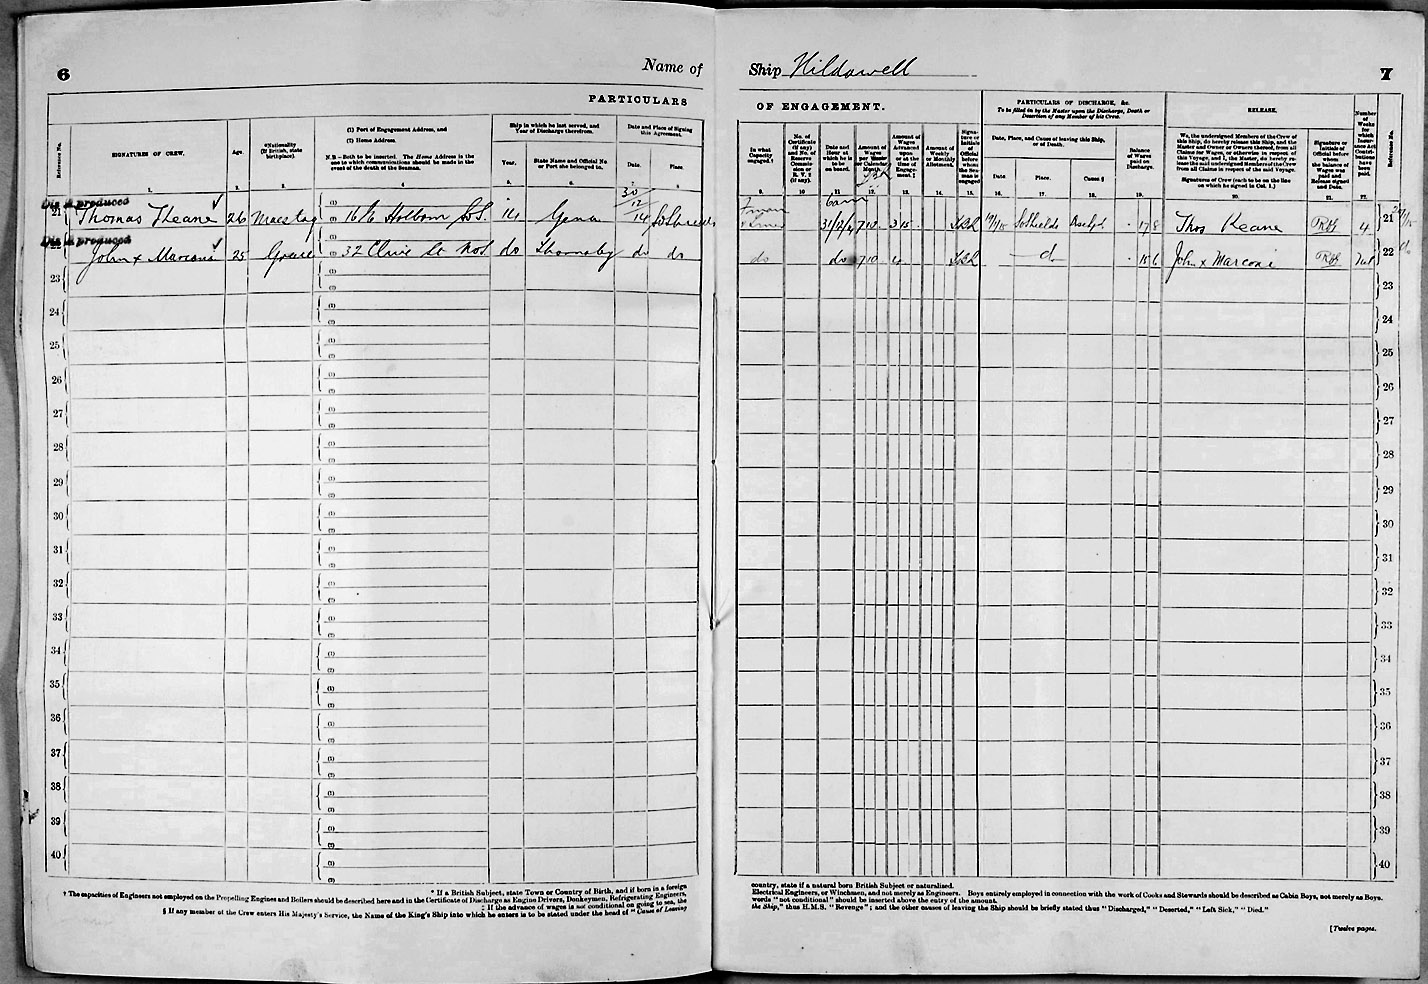 6
Name of
PARTICULARS
Reference No.
SIGNATURES OF CREW.
Age.
*Nationality
(If British, state
birthplace).
(1) Port of Engagement Address, and
(2) Home Address.
N.B.—Both to be inserted. The Home Address is the
one to which communications should be made in the
event of the death of the Seaman.
Ship in which he last served, and
Year of Discharge therefrom.
Year.
State Name and Official No.
or Port she belonged to.
Date and Place of Signing
this Agreement.
Date.
Place.
1. 2. 3. 4 5. 6. 7. 8
Dis A produced
21 Thomas Keane 26 Maestag (1) 16/6 Holborn So S. 14 Genoa 30/12/14 SoShields
(2)
Dis A produced
22 John x Marconi 25 Greece (1) 32 Clive St No S. do Thornaby do do
(2)
23 (1)
(2)
24 (1)
(2)
25 (1)
(2)
26 (1)
(2)
27 (1)
(2)
28 (1)
(2)
29 (1)
(2)
30 (1)
(2)
31 (1)
(2)
32 (1)
(2)
33 (1)
(2)
34 (1)
(2)
35 (1)
(2)
36 (1)
(2)
37 (1)
(2)
38 (1)
(2)
39 (1)
(2)
40 (1)
(2)
* If a British Subject, state Town or Country of Birth, and if born in a foreign
† The capacities of Engineers not employed on the Propelling Engines and Boilers should be described here and in the Certificate of Discharge as Engine Drivers, Donkeymen, Refrigerating Engineers,
‡ If the advance of wages is not conditional on going to sea, the
§ If any member of the Crew enters His Majesty's Service, the Name of the King's Ship into which he enters is to be stated under the head of "Cause of Leaving
Ship Hildawell
7
OF ENGAGEMENT.
PARTICULARS OF DISCHARGE, &c.
To be filled in by the Master upon the Discharge, Death or
Desertion of any Member of his Crew.
RELEASE.
In what
Capacity
engaged.†
No. of
Certificate
(if any)
and No. of
Reserve
Commis-
sion or
R. V. 2
(if any).
Date and
Hour at
which he is
to be
on board.
Amount of
Wages
per Week or
Calendar
Month.
Amount of
Wages
Advanced
upon
or at the
time of
Engage-
ment.‡
Amount of
Weekly
or Monthly
Allotment.
Signa-
ture or
Initials
of
Official
before
whom
the Sea-
man is
engaged
Date, Place, and Cause of leaving this Ship,
or of Death.
Date
Place.
Cause.§
Balance
of Wages
paid on
Discharge.
We, the undersigned Members of the Crew of
this Ship, do hereby release this Ship, and the
Master and Owner or Owners thereof, from all
Claims for Wages, or otherwise in respect of
this Voyage, and I, the Master, do hereby re-
lease the said undersigned Members of the Crew
from all Claims in respect of the said Voyage.
Signatures of Crew (each to be on the line
on which he signed in Col. 1.)
Signature or
Initials of
Official before
whom
the balance of
Wages was
paid and
Release signed
and Dated.
Number
of
Weeks
for
which
Insur-
ance Act
Contri-
butions
have
been
paid.
Reference No.
9. 10 11 12. 13. 14. 15. 16. 17. 18. 19. 20. 21. 22.
6am
31/12/14 7 10 3 15 SoShields Disch'd 17 8 Thos Keane 4 21
do do 7 10 4 do 15 6 John x Marconi 22
23
24
25
26
27
28
29
30
31
32
33
34
35
36
37
38
39
40
country, state if a natural born British Subject or naturalised.
Electrical Engineers, or Winchmen, and not merely as Engineers. Boys entirely employed in connection with the work of Cooks and Stewards should be described as Cabin Boys, not merely as Boys.
words "not conditional" should be inserted above the entry of the amount.
the Ship," thus H.M.S. "Revenge"; and the other causes of leaving the Ship should be briefly stated thus "Discharged," "Deserted," "Left Sick," "Died."
[Twelve pages.